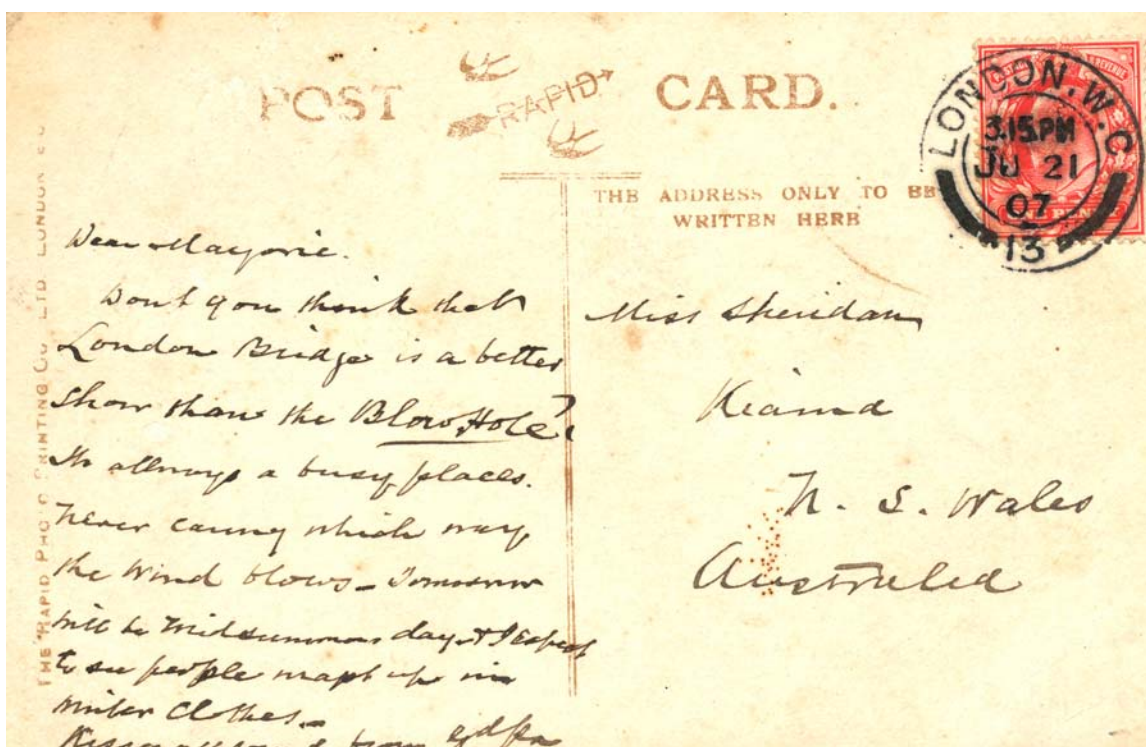 POST RAPID CARD.
THE ADDRESS ONLY TO BE
WRITTEN HERE
LONDON. W. C
3.15.PM
JU 21
07
13
THE "RAPID PHOTO PRINTING Co LTD. LONDON
Dear Marjorie.
Dont you think that
London Bridge is a better
show than the Blow Hole?
Its allways a busy places.
Never caring which way
the Wind blows – Tomorrow
will be Midsummers day & I expect
to see people wrapt up in
winter clothes –
Kisses
from
Miss Sheridan
Kiama
N. S. Wales
Australia